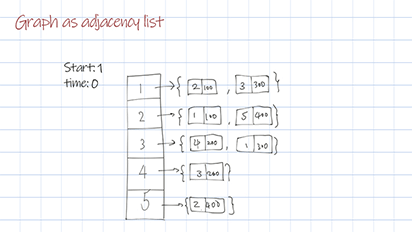 Graph as adjacency list
Start: 1
time: 0
1 → { 2 100 , 3 300 }
2 → { 1 100 , 5 400 }
3 → { 4 200 , 1 300 }
4 → { 3 200 }
5 → { 2 400 }